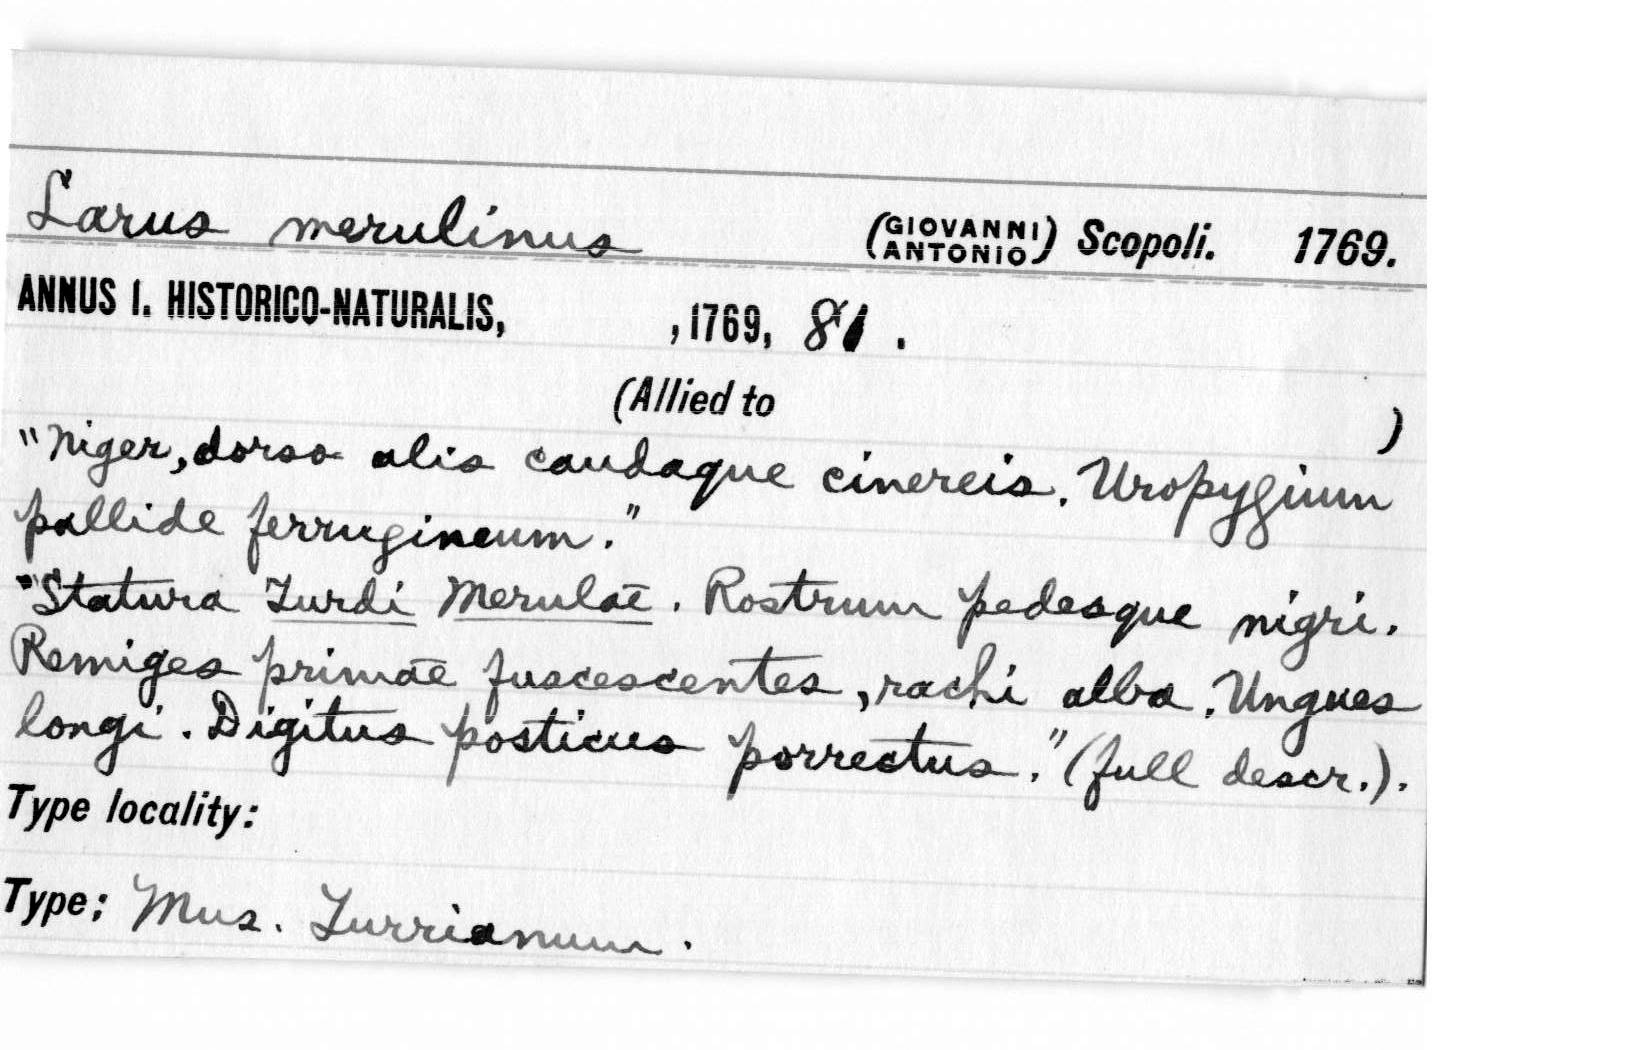 Larus merulinus (GIOVANNI ANTONIO) Scopoli. 1769.
ANNUS I. HISTORICO-NATURALIS, , 1769, 81 .
(Allied to )
"Niger, dorso alis caudaque cinereis. Uropygium
pallide ferrugineum."
"Statura Turdi Merulae. Rostrum pedesque nigri.
Remiges primae fuscescentes, rachi alba. Ungues
longi. Digitus posticus porrectus." (full descr.).
Type locality:
Type; Mus. Turrianum.